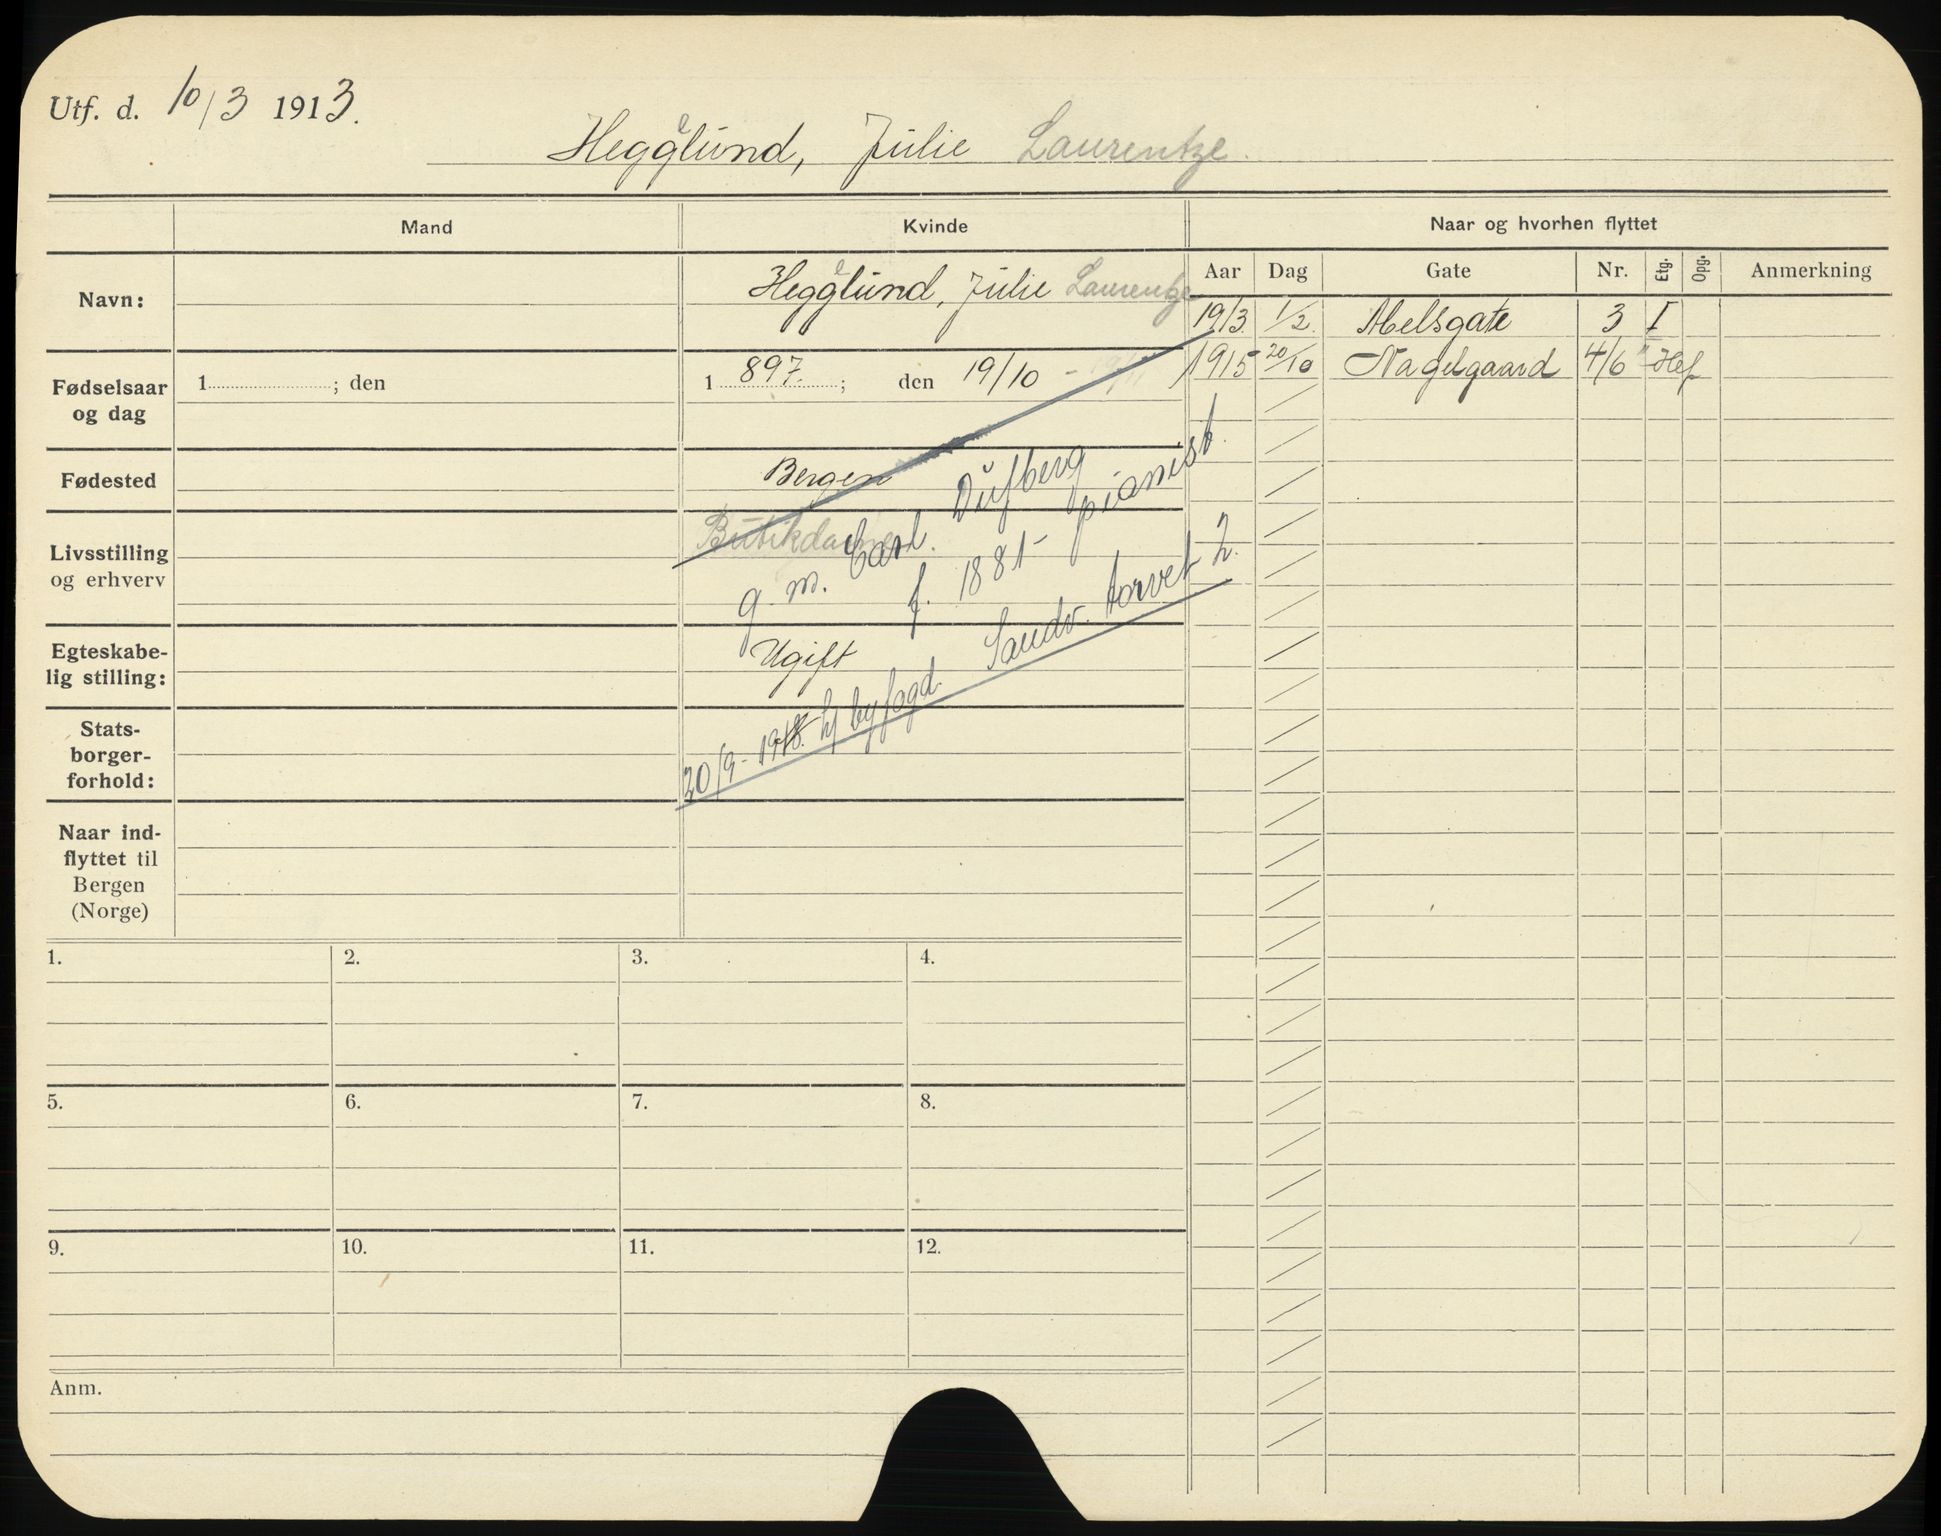 Utf. d. 10/3 1913.
Heggelund, Julie Laurentze.
Mand
Kvinde
Naar og hvorhen flyttet
Navn:
Heggelund, Julie Laurentze
Aar Dag Gate Nr. Etg. Opg. Anmerkning
1913 1/2. Abelsgate 3 I
1915 20/10 Nagelgaard 4/6 " Hef
Fødselsaar og dag
1 ; den
1 897. ; den 19/10 -
Fødested
Bergen
Livsstilling og erhverv
Butikdame
g. m. Carl. Dufberg
f. 1881 - pianist.
Egteskabe-
lig stilling:
Ugift
20/9 - 1918. h/ byfogd. Sandv. torvet 2.
Stats-
borger-
forhold:
Naar ind-
flyttet til
Bergen
(Norge)
1. 2. 3. 4.
5. 6. 7. 8.
9. 10. 11. 12.
Anm.